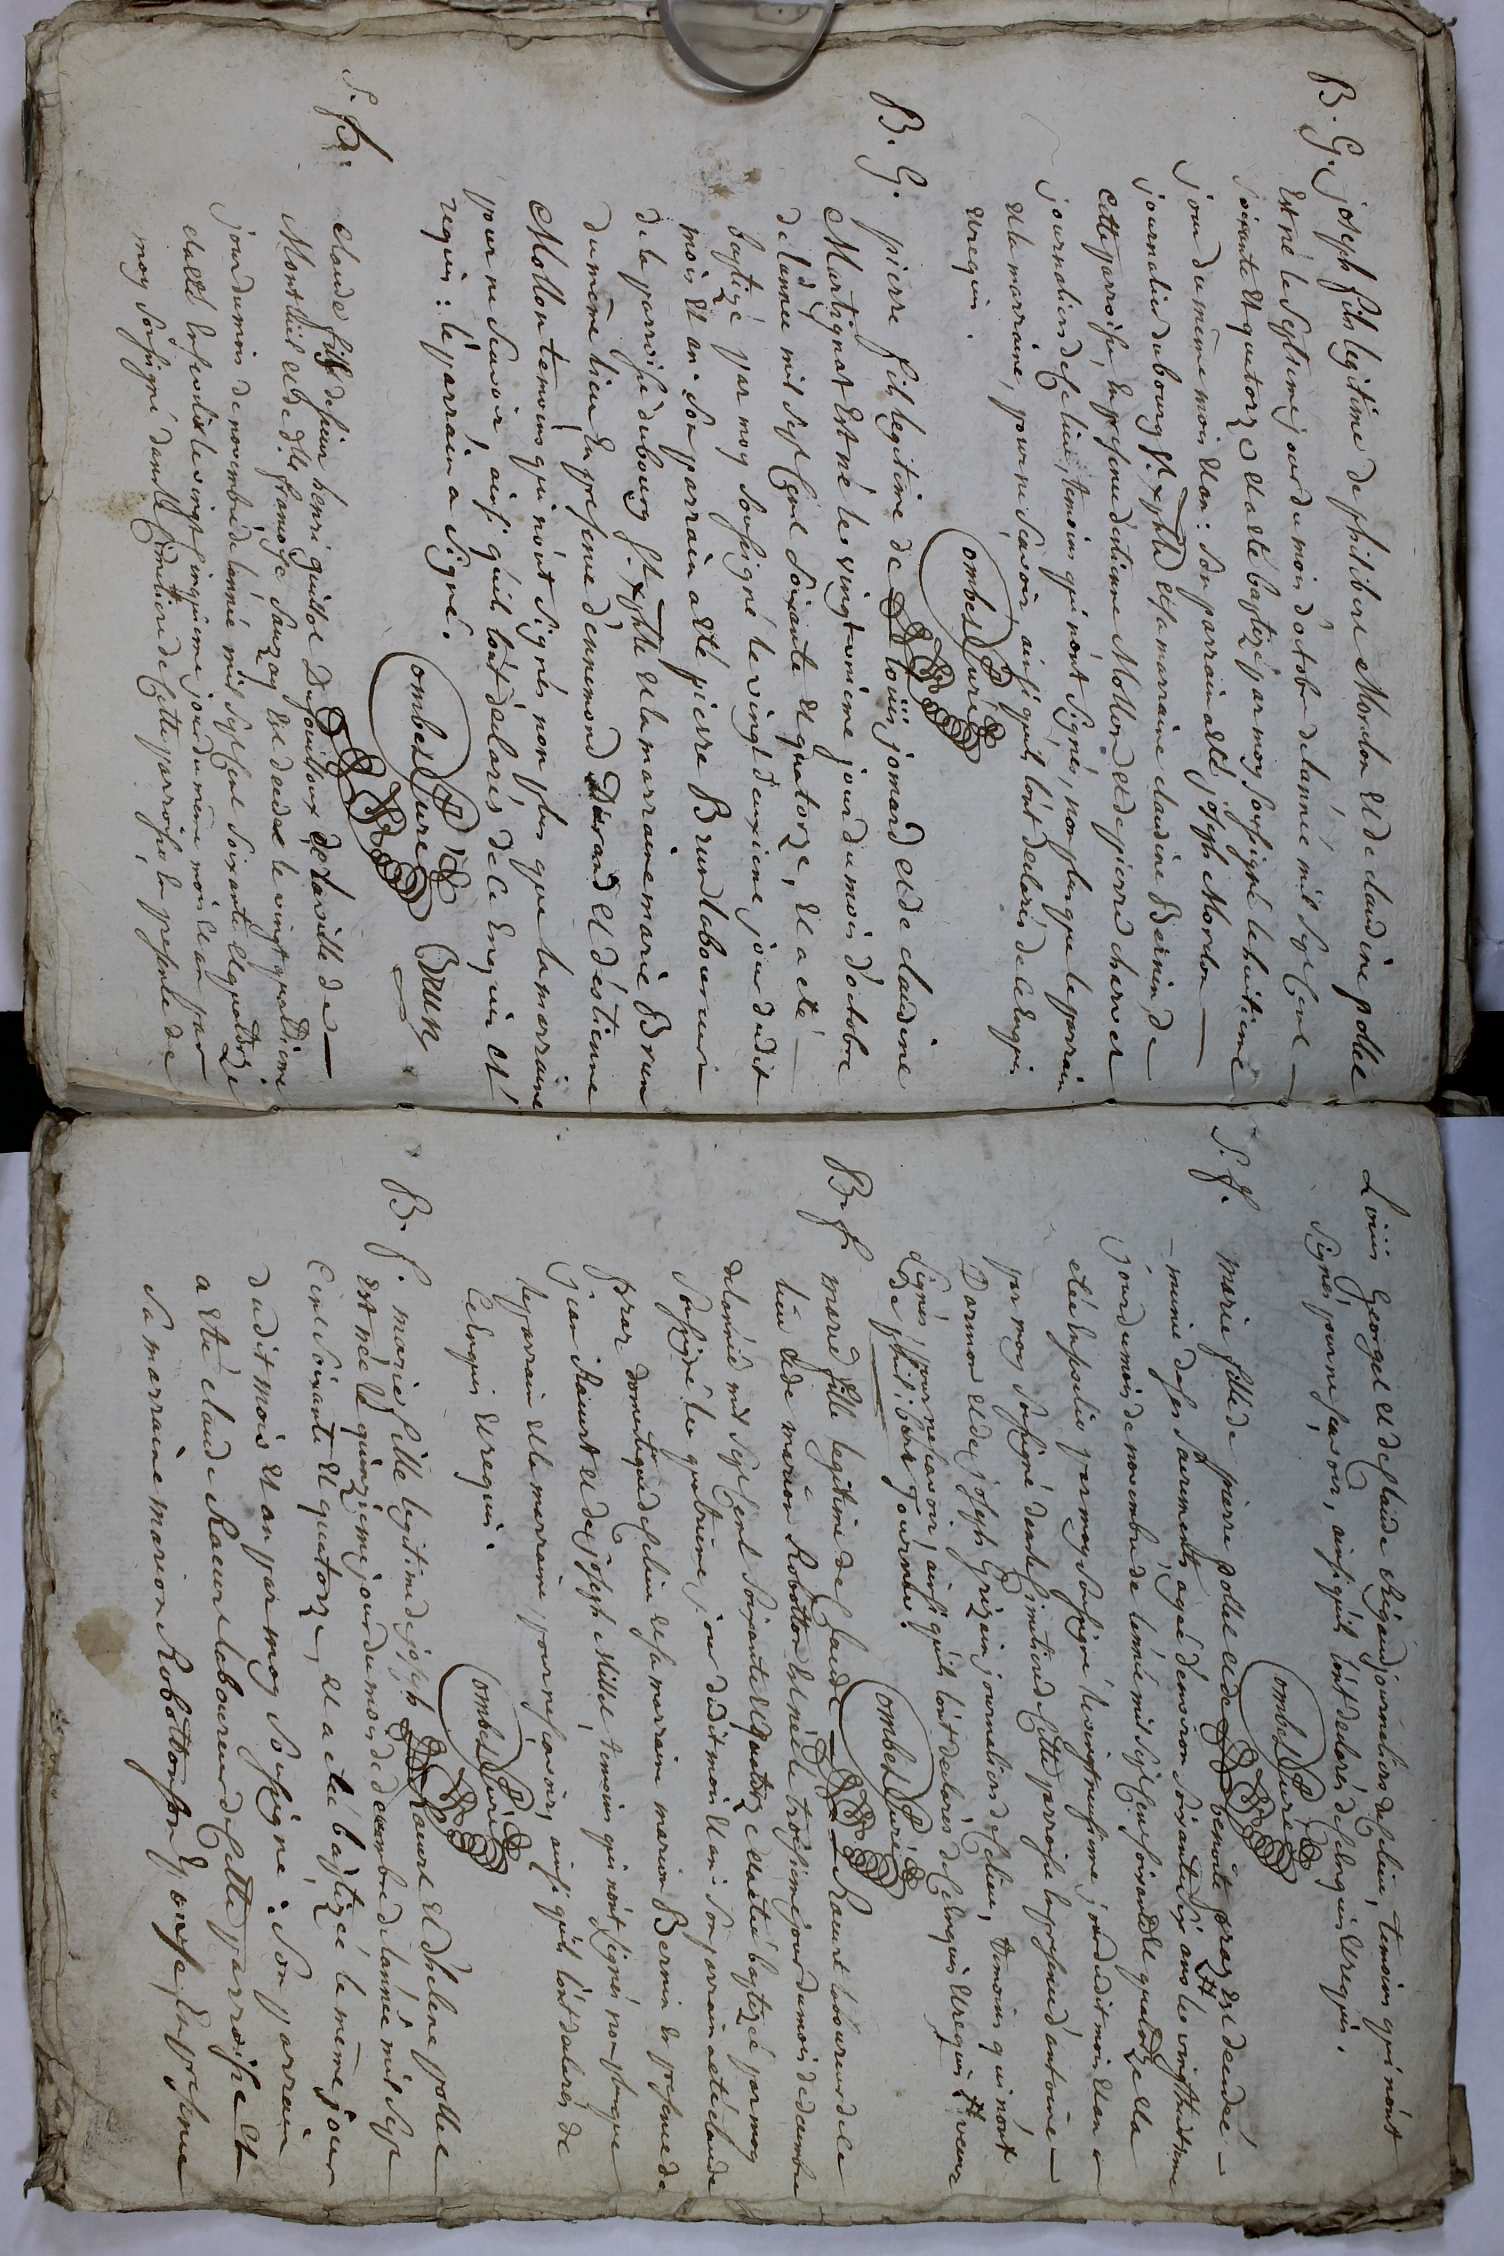 B. G. joseph fils legitime de philibert Mordon et de claudine pollet
Est né le septieme jour du mois d'octobre de lannée mil sept Cent
soixante et quatorze et a été baptizé par moy soussigné le huitieme
jour du même mois et an: son parrain a été joseph Mordon
journalier du bourg St. xphle et sa marraine claudine Bernin, de
cette parroisse, En presence d'etienne Mollon et de pierre charvet
journaliers de Ce lieu, temoins qui n'ont signés, non plus que le parrain
et la marraine, pour ne sçavoir, ainsi quils l'ont declarés de ce Enquis
et requis.
Combes Curé
B. G. pierre fils legitime de louis jomard et de claudine
Martignat Est né le vingt unieme jour du mois d'octobre
de lannee mil sept Cent soixante et quatorze, et a eté
baptizé par moy soussigné le vingt deuxieme jour dudit
mois et an. son parrain a eté pierre Brun laboureur
de la parroisse du bourg St. xphle et la marraine marie Brun
du même lieu, En presence d'ennemond Durand et d'estienne
Mollon temoins qui n'ont signés non plus que la marraine
pour ne scavoir, ainsi qu'ils l'ont déclarés de ce Enquis et
requis: le parrain a signé.
Combes Curé Brun
S. f. claude fille de sieur henri guillot Dufouilloux de la ville de
Montluel et de dlle françoise Sauzay Est decedée le vingt quatrieme
jour du mois de novembre de lannée mil sept Cent soixante et quatorze
et a été Ensevelie le vingt Cinquieme jour du même mois et an par
moy soussigné dans le Cimetiere de Cette parroisse, En presence de
Louis Georget et de Claude Rigaud journaliers de Ce lieu, temoins qui n'ont
signés, pour ne scavoir, ainsi quils l'ont declarés de Ce Enquis et requis.
Combes Curé
S. f. marie fille de pierre pollet et de benoite praz Est decedée
munie de ses sacrements, ageé d'environ soixante dix ans le vingt huitieme
jour du mois de novembre de lannée mil sept Cent soixante et quatorze et a
eté Ensevelie par moy soussigné le vingt neufieme jour dudit mois et an
par moy soussigné dans le Cimetiere de Cette parroisse En presence d'antoine
Dormon et de joseph Grizain journaliers de Ce lieu, temoins qui n'ont
signés, pour ne scavoir, ainsi quils l'ont declarés de Ce Enquis et requis veuve
de philibert Tournier.
Combes Curé
B. f. marie fille legitime de Claude Racurt laboureur de Ce
lieu et de marion Robotton Est née le troisieme jour du mois de decembre
de lannée mil sept Cent soixante et quatorze et a eté baptizée par moy
soussigné le quatrieme jour dudit mois et an. son parrain a eté claude
praz domestique de Ce lieu et sa marraine marion Bernin en presence de
jean Racurt et de joseph Millet, temoins qui n'ont signés non plus que
le parrain et la marraine pour ne scavoir, ainsi quils l'ont declarés de
Ce Enquis et requis.
Combes Curé
B. f. marie fille legitime de joseph Racurt et d'helene pollet
Est née le quinzieme jour du mois de decembre de lannée mil sept
Cent soixante et quatorze, et a eté baptizée le même jour
dudit mois et an par moy soussigné. son parrain
a eté claude Racurt laboureur de Cette parroisse et
sa marraine marion Robotton son Epouse, En presence